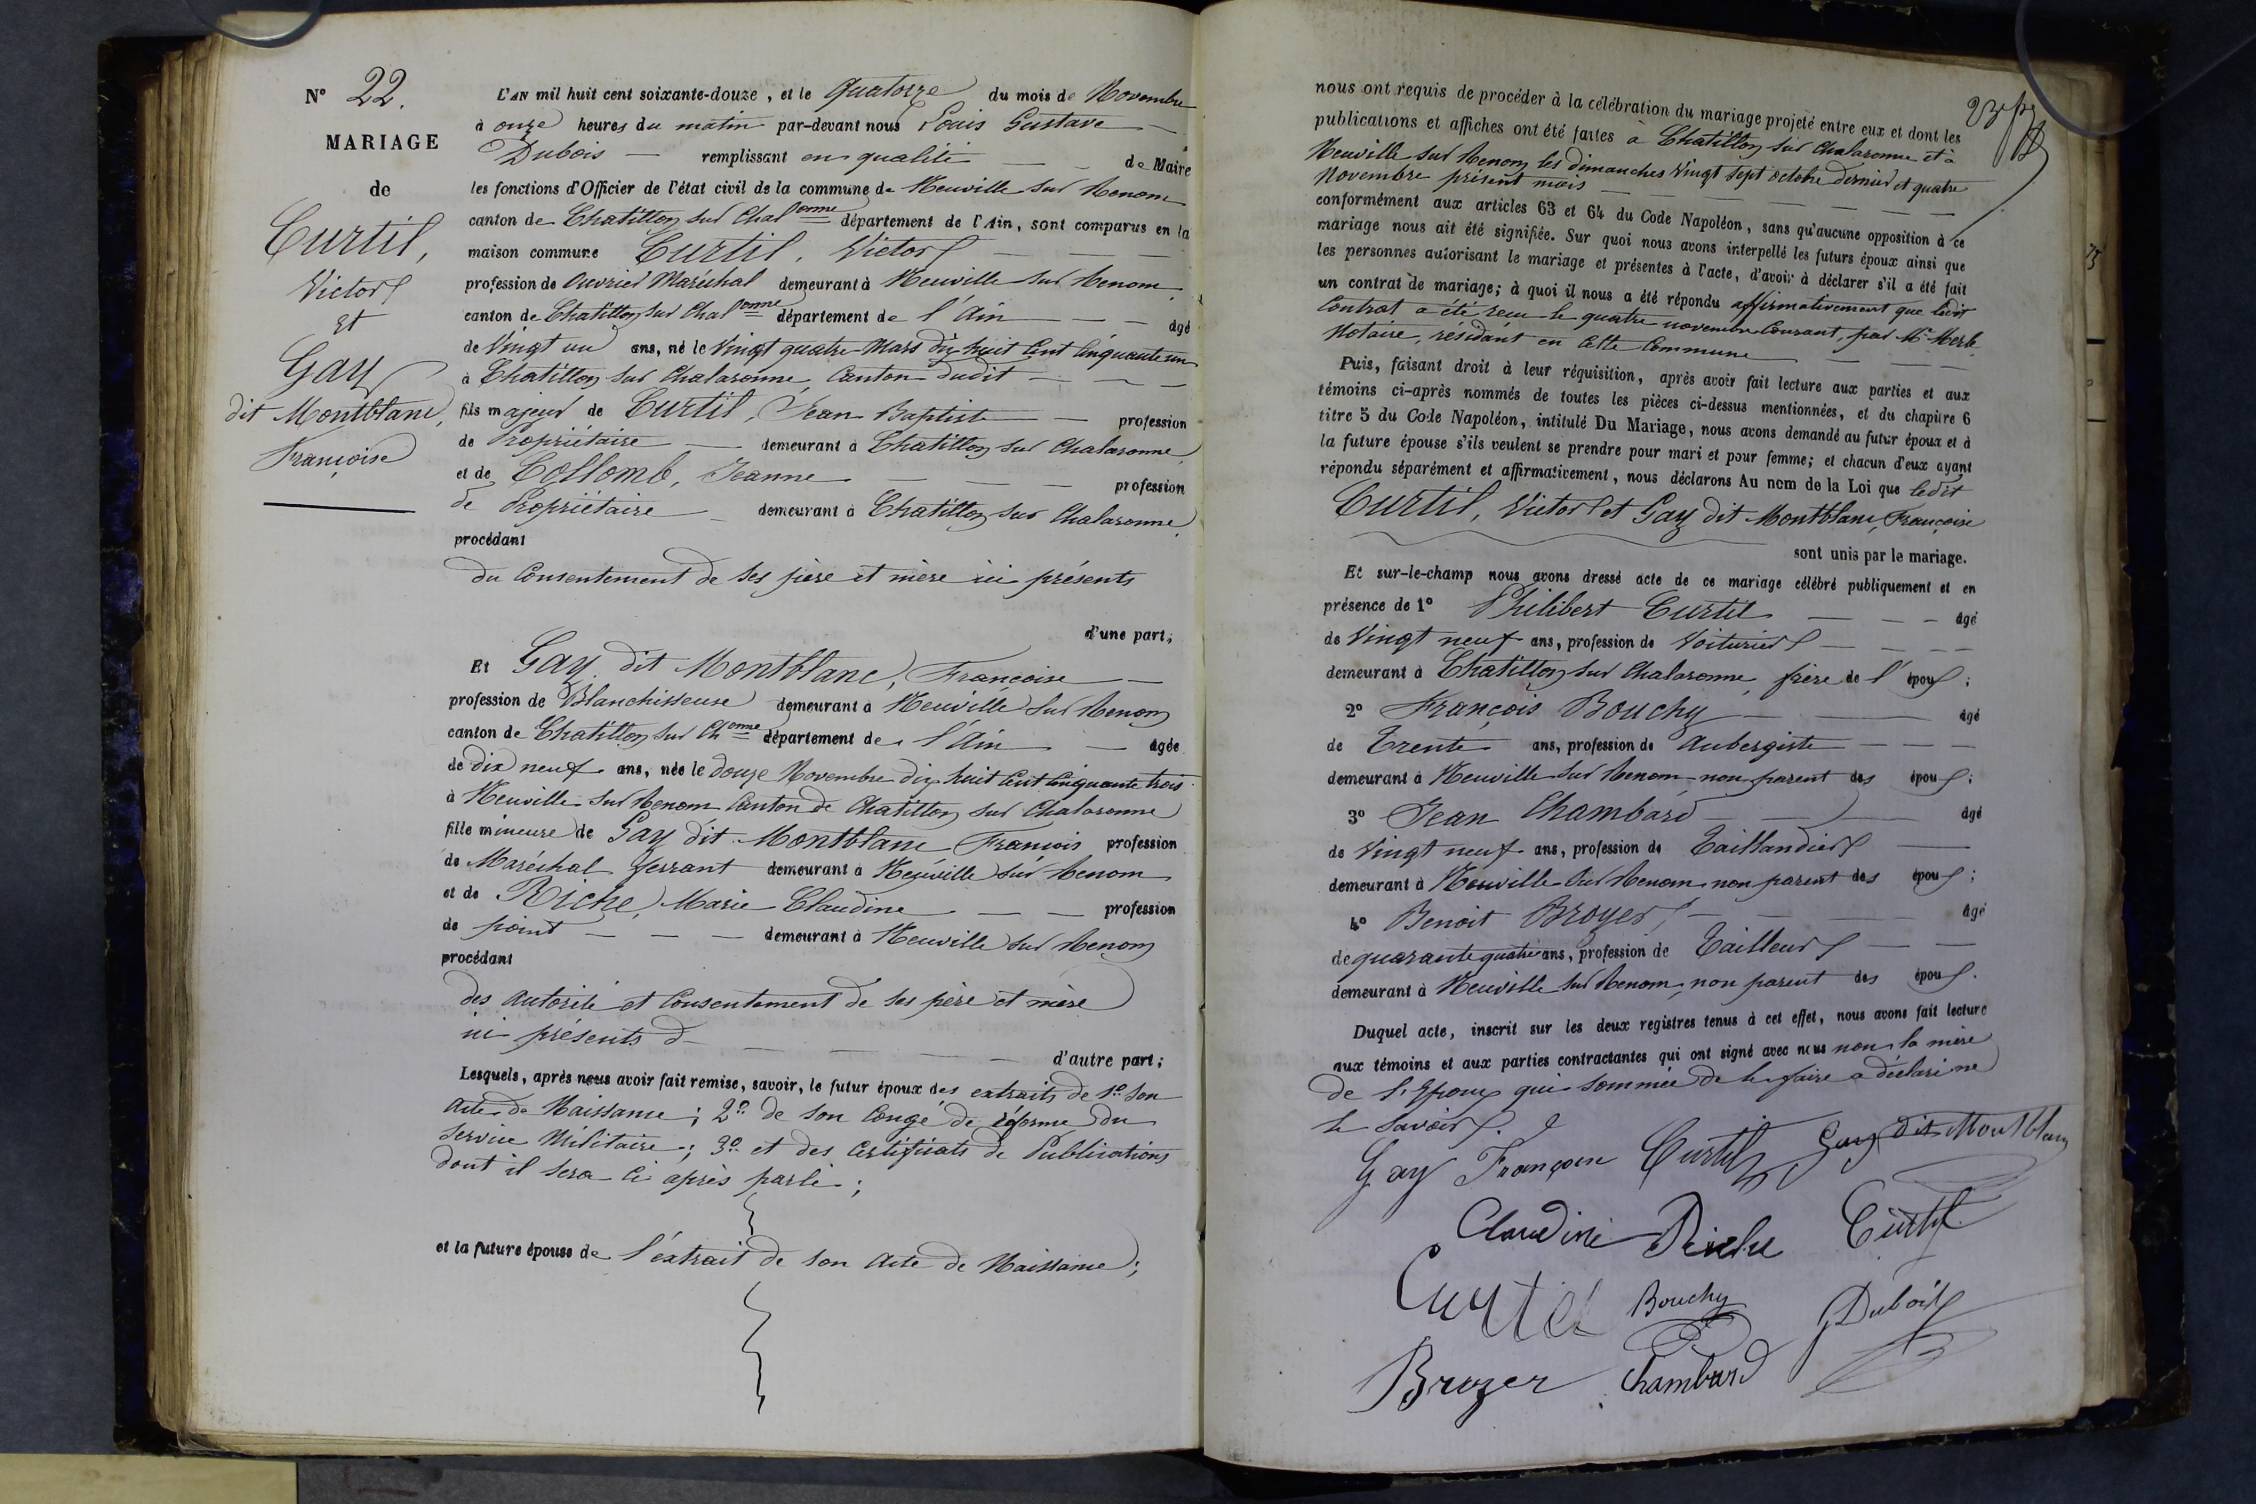 N° 22.
MARIAGE
de
Curtil,
Victor
et
Gay
dit Montblanc,
Françoise
L'AN mil huit cent soixante-douze, et le Quatorze du mois de Novembre
à onze heures du matin par-devant nous Louis Gustave
Dubois remplissant en qualité de Maire
les fonctions d'Officier de l'état civil de la commune de Neuville sur Renom
canton de Chatillon sur Chalonne département de l'Ain, sont comparus en la
maison commune Curtil, Victor
profession de ouvrier Maréchal demeurant à Neuville sur Renom,
canton de Chatillon sur Chalonne département de l'Ain âgé
de Vingt un ans, né le Vingt quatre Mars dix huit Cent Cinquante un
à Chatillon sur Chalaronne, Canton dudit
fils majeur de Curtil, Jean Baptiste profession
de Propriétaire demeurant à Chatillon sur Chalaronne,
et de Collomb, Jeanne profession
de Propriétaire demeurant à Chatillon sur Chalaronne,
procédant
du Consentement de ses père et mère ici présents
d'une part;
Et Gay dit Montblanc, Françoise
profession de Blanchisseuse demeurant à Neuville sur Renom
canton de Chatillon sur Chonne département de l'Ain âgée
de dix neuf ans, née le douze Novembre dix huit Cent Cinquante trois
à Neuville sur Renom Canton de Chatillon sur Chalaronne
fille mineure de Gay dit Montblanc François profession
de Maréchal ferrant demeurant à Neuville sur Renom
et de Riche, Marie Claudine profession
de point demeurant à Neuville sur Renom
procédant
des autorité et Consentement de ses père et mère
ici présents
d'autre part;
Lesquels, après nous avoir fait remise, savoir, le futur époux des extraits de 1° son
acte de Naissance; 2° de son Congé de réforme du
Service Militaire; 3° et des Certificats de Publications
dont il sera ci après parlé;
et la future épouse de l'extrait de son acte de Naissance;
nous ont requis de procéder à la célébration du mariage projeté entre eux et dont les
publications et affiches ont été faites à Chatillon sur Chalaronne et à
Neuville sur Renom les dimanches Vingt Sept octobre dernier et quatre
Novembre présent mois
conformément aux articles 63 et 64 du Code Napoléon, sans qu'aucune opposition à ce
mariage nous ait été signifiée. Sur quoi nous avons interpellé les futurs époux ainsi que
les personnes autorisant le mariage et présentes à l'acte, d'avoir à déclarer s'il a été fait
un contrat de mariage; à quoi il nous a été répondu affirmativement que ledit
Contrat a été reçu le quatre novembre Courant, par Me
Notaire, résidant en cette Commune
Puis, faisant droit à leur réquisition, après avoir fait lecture aux parties et aux
témoins ci-après nommés de toutes les pièces ci-dessus mentionnées, et du chapitre 6
titre 5 du Code Napoléon, intitulé Du Mariage, nous avons demandé au futur époux et à
la future épouse s'ils veulent se prendre pour mari et pour femme; et chacun d'eux ayant
répondu séparément et affirmativement, nous déclarons Au nom de la Loi que ledit
Curtil, Victor et Gay dit Montblanc, Françoise
sont unis par le mariage.
Et sur-le-champ nous avons dressé acte de ce mariage célébré publiquement et en
présence de 1° Philibert Curtil âgé
de Vingt neuf ans, profession de Voiturier
demeurant à Chatillon sur Chalaronne, frère de l'époux;
2° François Bouchy âgé
de Trente ans, profession de Aubergiste
demeurant à Neuville sur Renom non parent des époux;
3° Jean Chambard âgé
de Vingt neuf ans, profession de Taillandier
demeurant à Neuville sur Renom non parent des époux;
4° Benoit Broyer âgé
de quarante quatre ans, profession de Tailleur
demeurant à Neuville sur Renom, non parent des époux.
Duquel acte, inscrit sur les deux registres tenus à cet effet, nous avons fait lecture
aux témoins et aux parties contractantes qui ont signé avec nous non la mère
de l'Epoux qui sommée de le faire a déclaré ne
le savoir.
Gay Françoise Curtil Gay dit Montblanc
Claudine Riche Curtil
Curtil Bouchy Dubois
Broyer Chambard